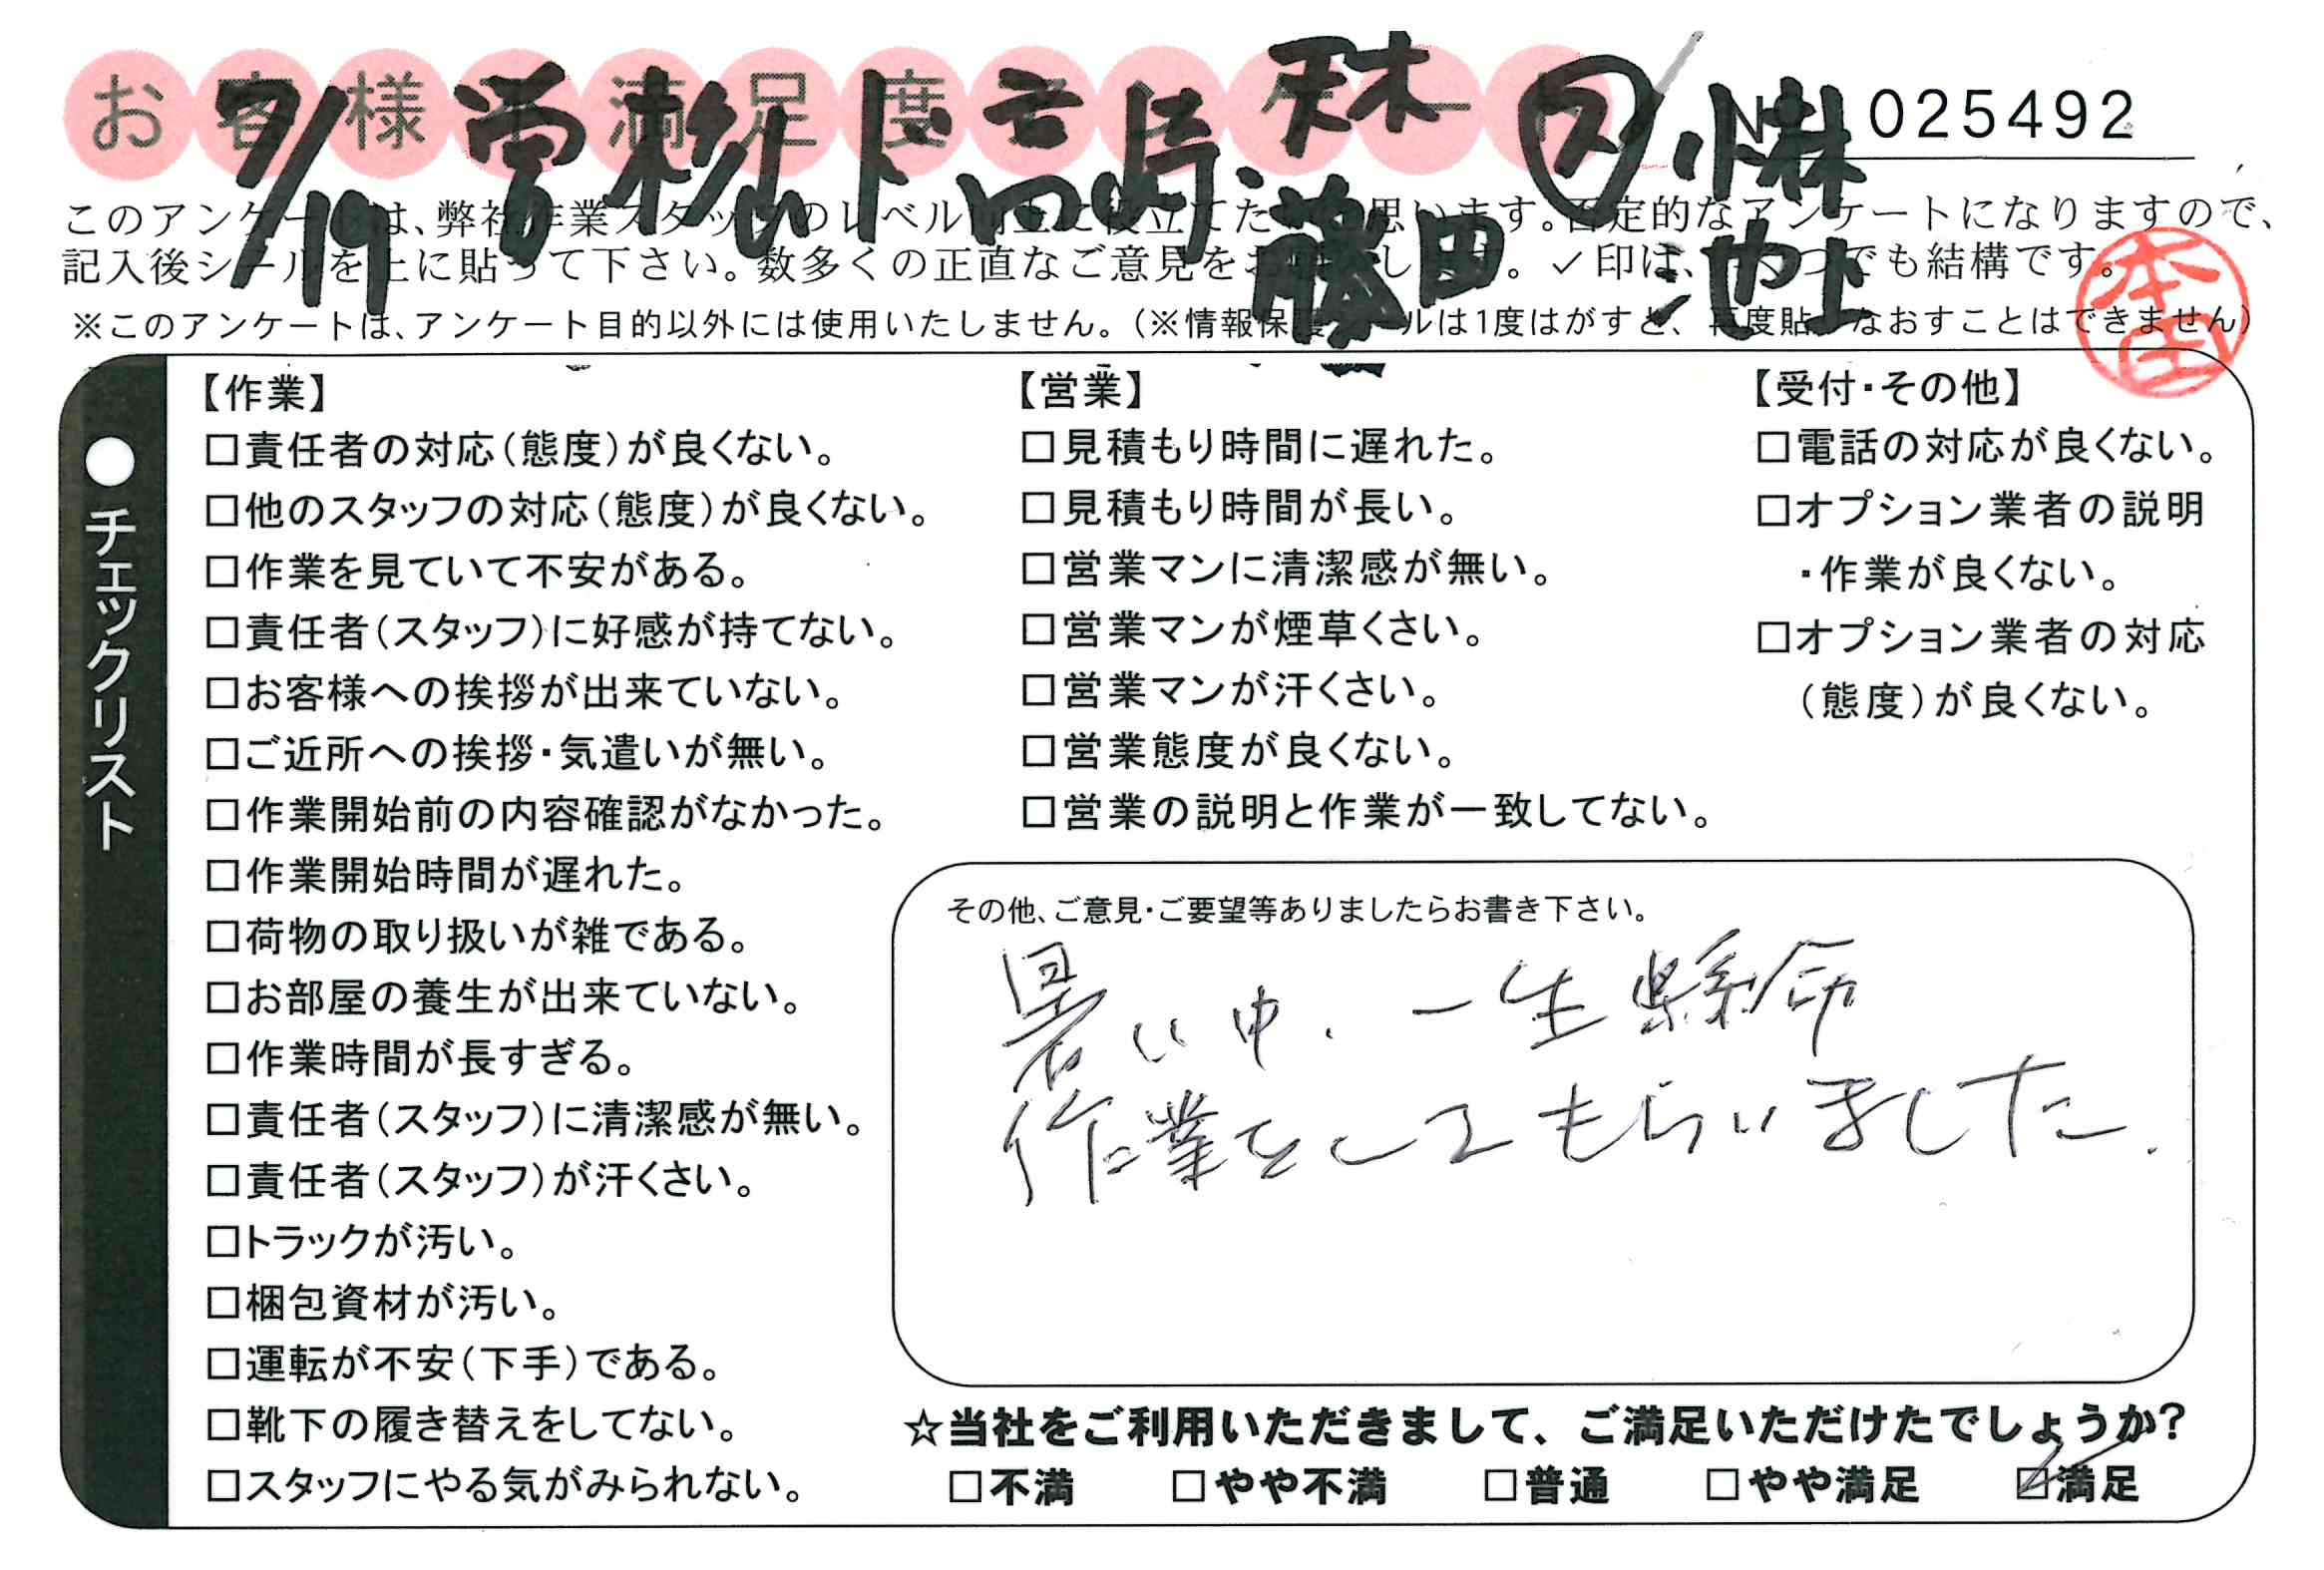 お客様 満足度アンケート No. 025492
7/19 営 松山 ド 宮崎 天木 ㋜ 小林
藤田 池上
このアンケートは、弊社作業スタッフのレベル向上に役立てたいと思います。否定的なアンケートになりますので、
記入後シールを上に貼って下さい。数多くの正直なご意見をお願いします。✓印は、いくつでも結構です。
※このアンケートは、アンケート目的以外には使用いたしません。(※情報保護シールは1度はがすと、再度貼りなおすことはできません)
●チェックリスト
【作業】
□責任者の対応(態度)が良くない。
□他のスタッフの対応(態度)が良くない。
□作業を見ていて不安がある。
□責任者(スタッフ)に好感が持てない。
□お客様への挨拶が出来ていない。
□ご近所への挨拶・気遣いが無い。
□作業開始前の内容確認がなかった。
□作業開始時間が遅れた。
□荷物の取り扱いが雑である。
□お部屋の養生が出来ていない。
□作業時間が長すぎる。
□責任者(スタッフ)に清潔感が無い。
□責任者(スタッフ)が汗くさい。
□トラックが汚い。
□梱包資材が汚い。
□運転が不安(下手)である。
□靴下の履き替えをしてない。
□スタッフにやる気がみられない。
【営業】
□見積もり時間に遅れた。
□見積もり時間が長い。
□営業マンに清潔感が無い。
□営業マンが煙草くさい。
□営業マンが汗くさい。
□営業態度が良くない。
□営業の説明と作業が一致してない。
【受付・その他】
□電話の対応が良くない。
□オプション業者の説明
・作業が良くない。
□オプション業者の対応
(態度)が良くない。
その他、ご意見・ご要望等ありましたらお書き下さい。
暑い中、一生懸命
作業をしてもらいました。
☆当社をご利用いただきまして、ご満足いただけたでしょうか?
□不満 □やや不満 □普通 □やや満足 ☑満足